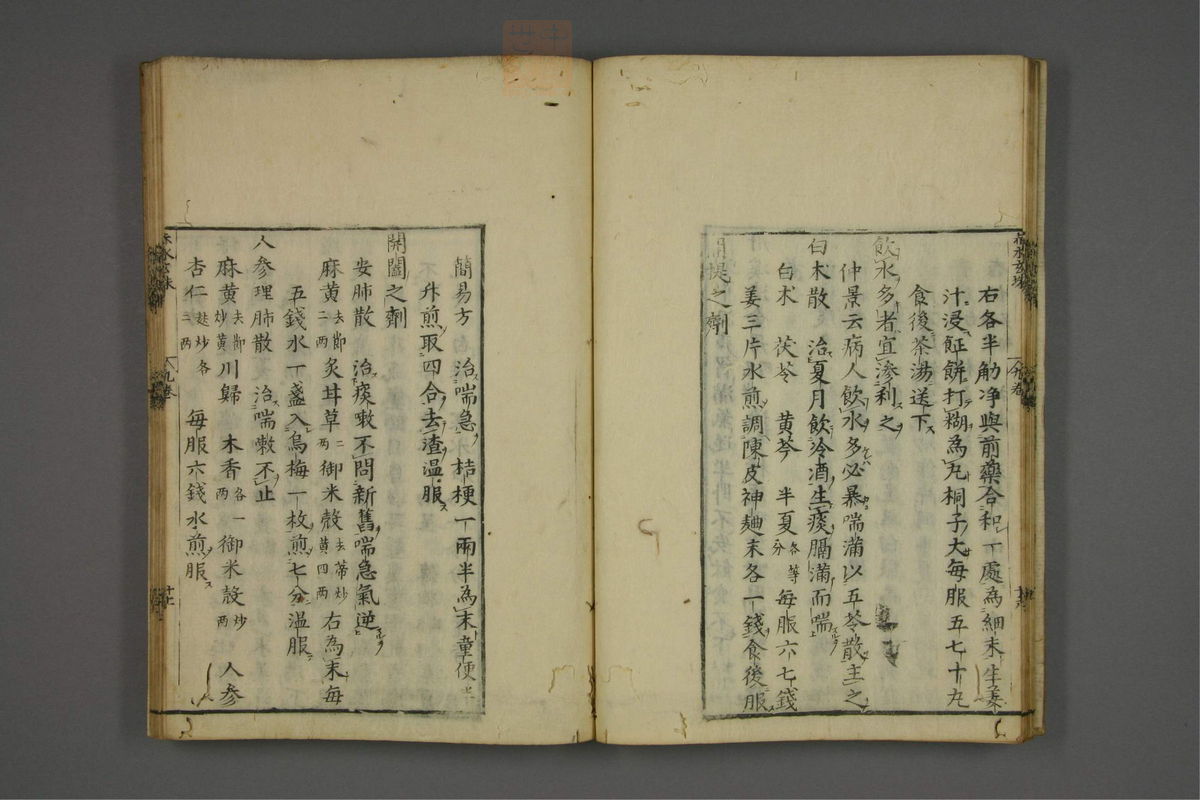 右各半觔净與前藥合和一處為細末生姜
汁浸䭔餅打糊為丸桐子大每服五七十丸
食後茶湯送下
飲水多者宜滲利之
仲景云病人飲水多必暴喘滿以五苓散主之
白术散 治夏月飲冷酒生痰膈滿而喘
白术 茯苓 黄芩 半夏各等分 每服六七錢
姜三片水煎調陳皮神麯末各一錢食後服
提之劑
簡易方 治喘急 桔梗一兩半為末童便半
升煎取四合去渣温服
開闔之劑
安肺散 治痰嗽不問新舊喘急氣逆
麻黄去節二两 炙甘草二两 御米殼去蒂炒黄四两 右為末每
五錢水一盞入烏梅一枚煎七分温服
人参理肺散 治喘嗽不止
麻黄去節炒黄 川歸 木香各一两 御米殼炒两 人参
杏仁麩炒各二两 每服六錢水煎服
九卷